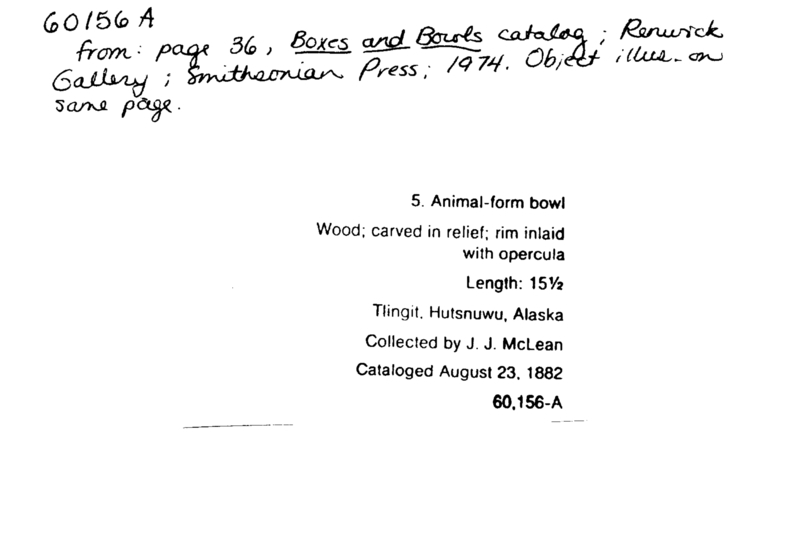 60156 A
from: page 36, Boxes and Bowls catalog; Renwick
Gallery; Smithsonian Press; 1974. Object illus. on
same page.
5. Animal-form bowl
Wood; carved in relief; rim inlaid
with opercula
Length: 15½
Tlingit, Hutsnuwu, Alaska
Collected by J. J. McLean
Cataloged August 23, 1882
60,156-A